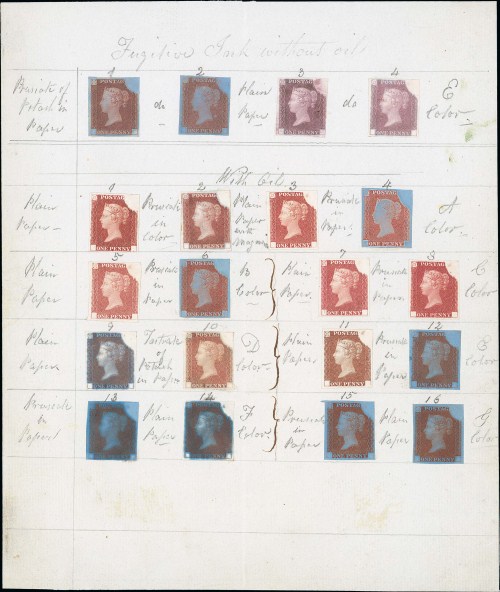 Fugitive Ink without oils
1 2 3 4
Prussiate of Potash in Paper do Plain Paper do E Color
POSTAGE POSTAGE POSTAGE POSTAGE
ONE PENNY ONE PENNY ONE PENNY ONE PENNY
With Oils
1 2 3 4
Plain Paper Prussiate in Color Plain Paper with Prussiate in Paper A Color
POSTAGE POSTAGE POSTAGE POSTAGE
ONE PENNY ONE PENNY ONE PENNY ONE PENNY
5 6 7 8
Plain Paper Prussiate in Paper B Color Plain Paper Prussiate in Paper C Color
POSTAGE POSTAGE POSTAGE POSTAGE
ONE PENNY ONE PENNY ONE PENNY ONE PENNY
9 10 11 12
Plain Paper Tartrate of Potash in Paper D Color Plain Paper Prussiate in Paper E Color
POSTAGE POSTAGE POSTAGE POSTAGE
ONE PENNY ONE PENNY ONE PENNY ONE PENNY
13 14 15 16
Prussiate in Paper Plain Paper F Color Prussiate in Paper Plain Paper G Color
POSTAGE POSTAGE
ONE PENNY ONE PENNY